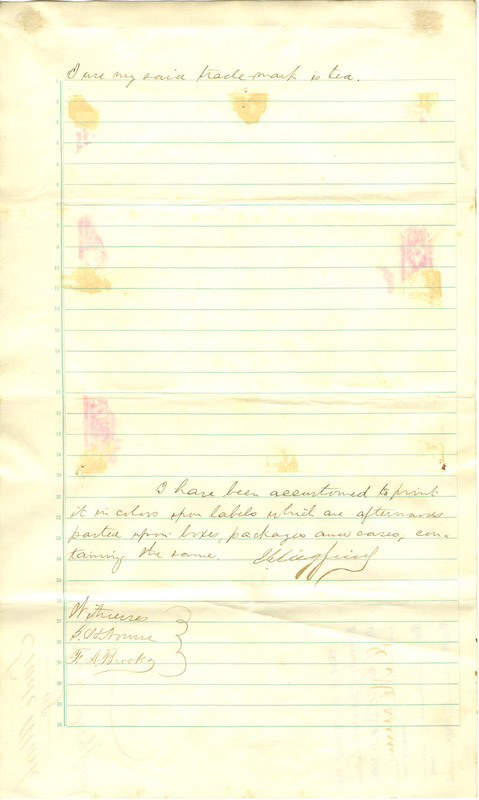 I use my said trade-mark is tea.
I have been accustomed to print
it in colors upon labels which are afterwards
pasted upon boxes, packages and cases, con-
taining the same.
Witnesses
F. A. Brooks